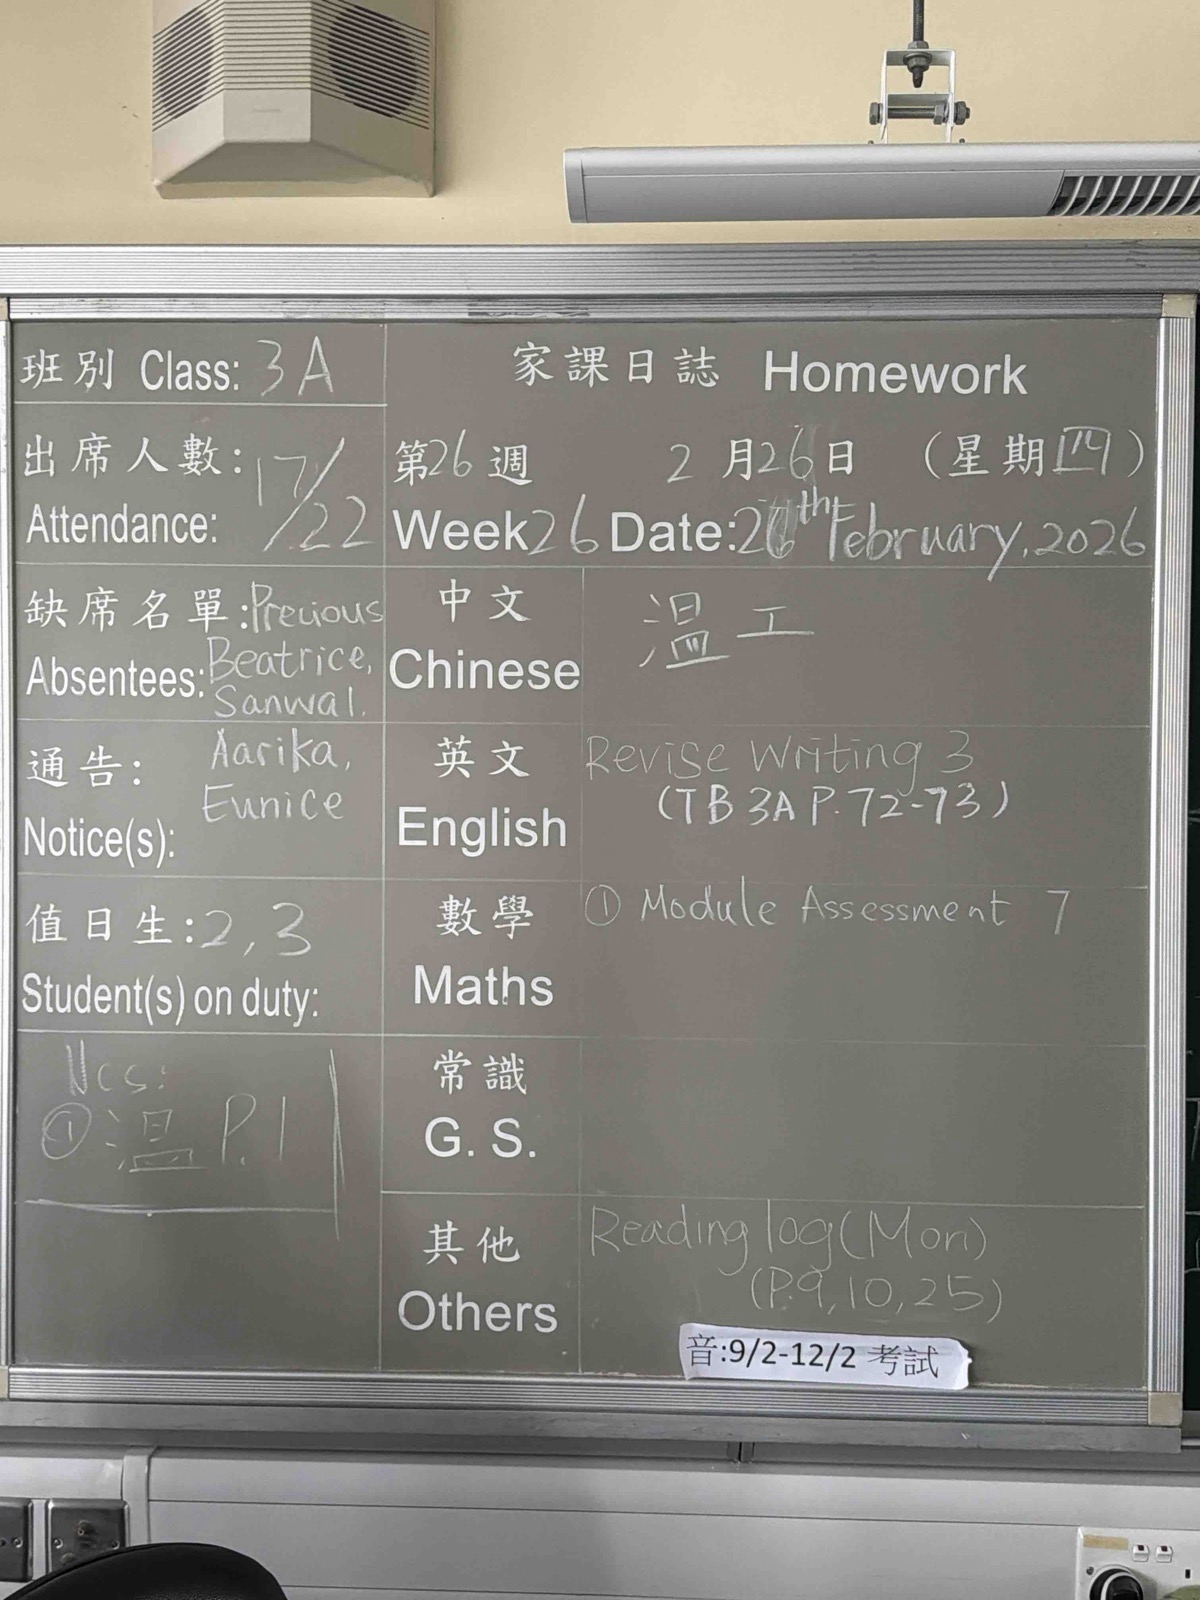 班別 Class: 3A
出席人數: 17/22
Attendance:
缺席名單: Precious
Absentees: Beatrice,
Sanwal,
Aarika,
Eunice
通告:
Notice(s):
值日生: 2, 3
Student(s) on duty:
Ncs:
① 温 P.1
家課日誌 Homework
第26週 2月26日 (星期四)
Week 26 Date: 26th February, 2026
中文 温工
Chinese
英文 Revise Writing 3
(TB 3A P. 72-73)
English
數學 ① Module Assessment 7
Maths
常識
G. S.
其他 Reading log (Mon)
(P.9, 10, 25)
Others
音:9/2-12/2 考試